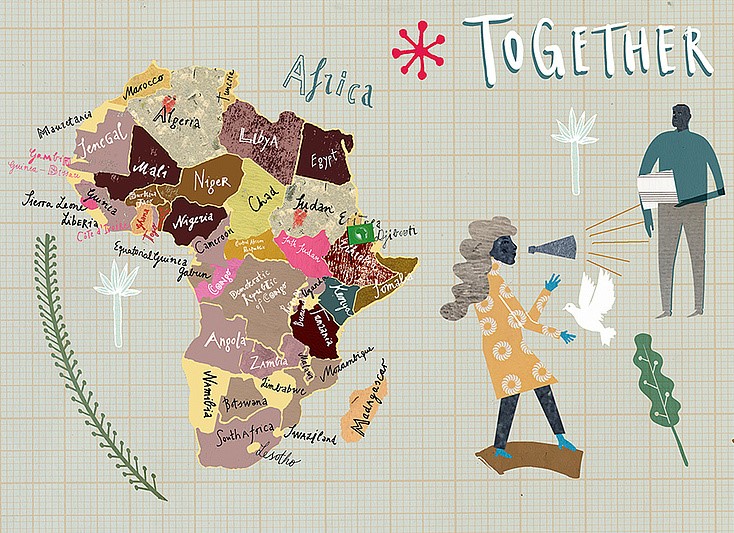 TOGETHER
Africa
Morocco
Tunisia
Algeria
Mauretania
Libya
Egypt
Senegal
Mali
Niger
Chad
Sudan
Eritrea
Djibouti
Gambia
Guinea-Bissau
Guinea
Sierra Leone
LiBERiA
Burkina
Faso
Ghana
Togo
Nigeria
Cameroon
Central African
Republic
South Sudan
Somalia
Equatorial Guinea
Gabun
Congo
Democratic
Republic
of Congo
Uganda
Kenya
Tanzania
Angola
Zambia
Malawi
Mozambique
Namibia
Zimbabwe
Botswana
Madagascar
South Africa
Swaziland
Lesotho